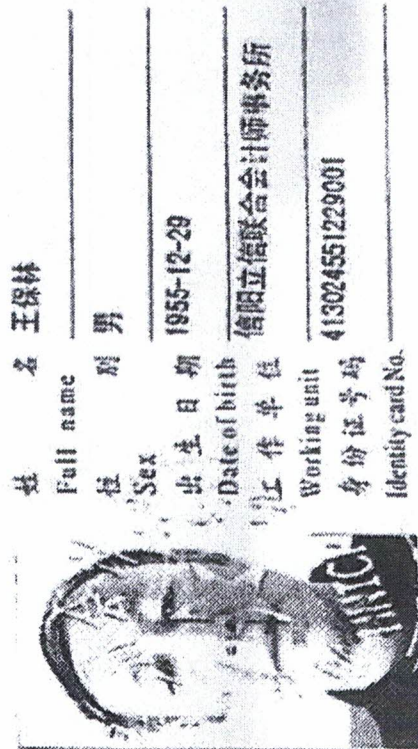 姓 名 王保林
Full name
性 别 男
Sex
出 生 日 期 1955-12-29
Date of birth
工 作 单 位 信阳立信联合会计师事务所
Working unit
身 份 证 号 码 413024551229001
Identity card No.